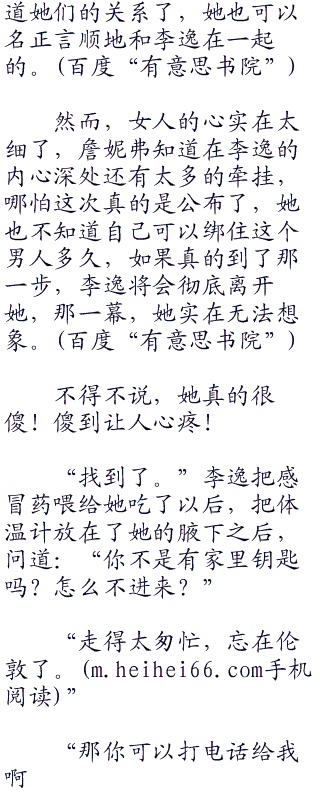 道她们的关系了，她也可以
名正言顺地和李逸在一起
的。(百度“有意思书院”)
然而，女人的心实在太
细了，詹妮弗知道在李逸的
内心深处还有太多的牵挂，
哪怕这次真的是公布了，她
也不知道自己可以绑住这个
男人多久，如果真的到了那
一步，李逸将会彻底离开
她，那一幕，她实在无法想
象。(百度“有意思书院”)
不得不说，她真的很
傻！傻到让人心疼！
“找到了。”李逸把感
冒药喂给她吃了以后，把体
温计放在了她的腋下之后，
问道：“你不是有家里钥匙
吗？怎么不进来？”
“走得太匆忙，忘在伦
敦了。(m.heihei66.com手机
阅读)”
“那你可以打电话给我
啊